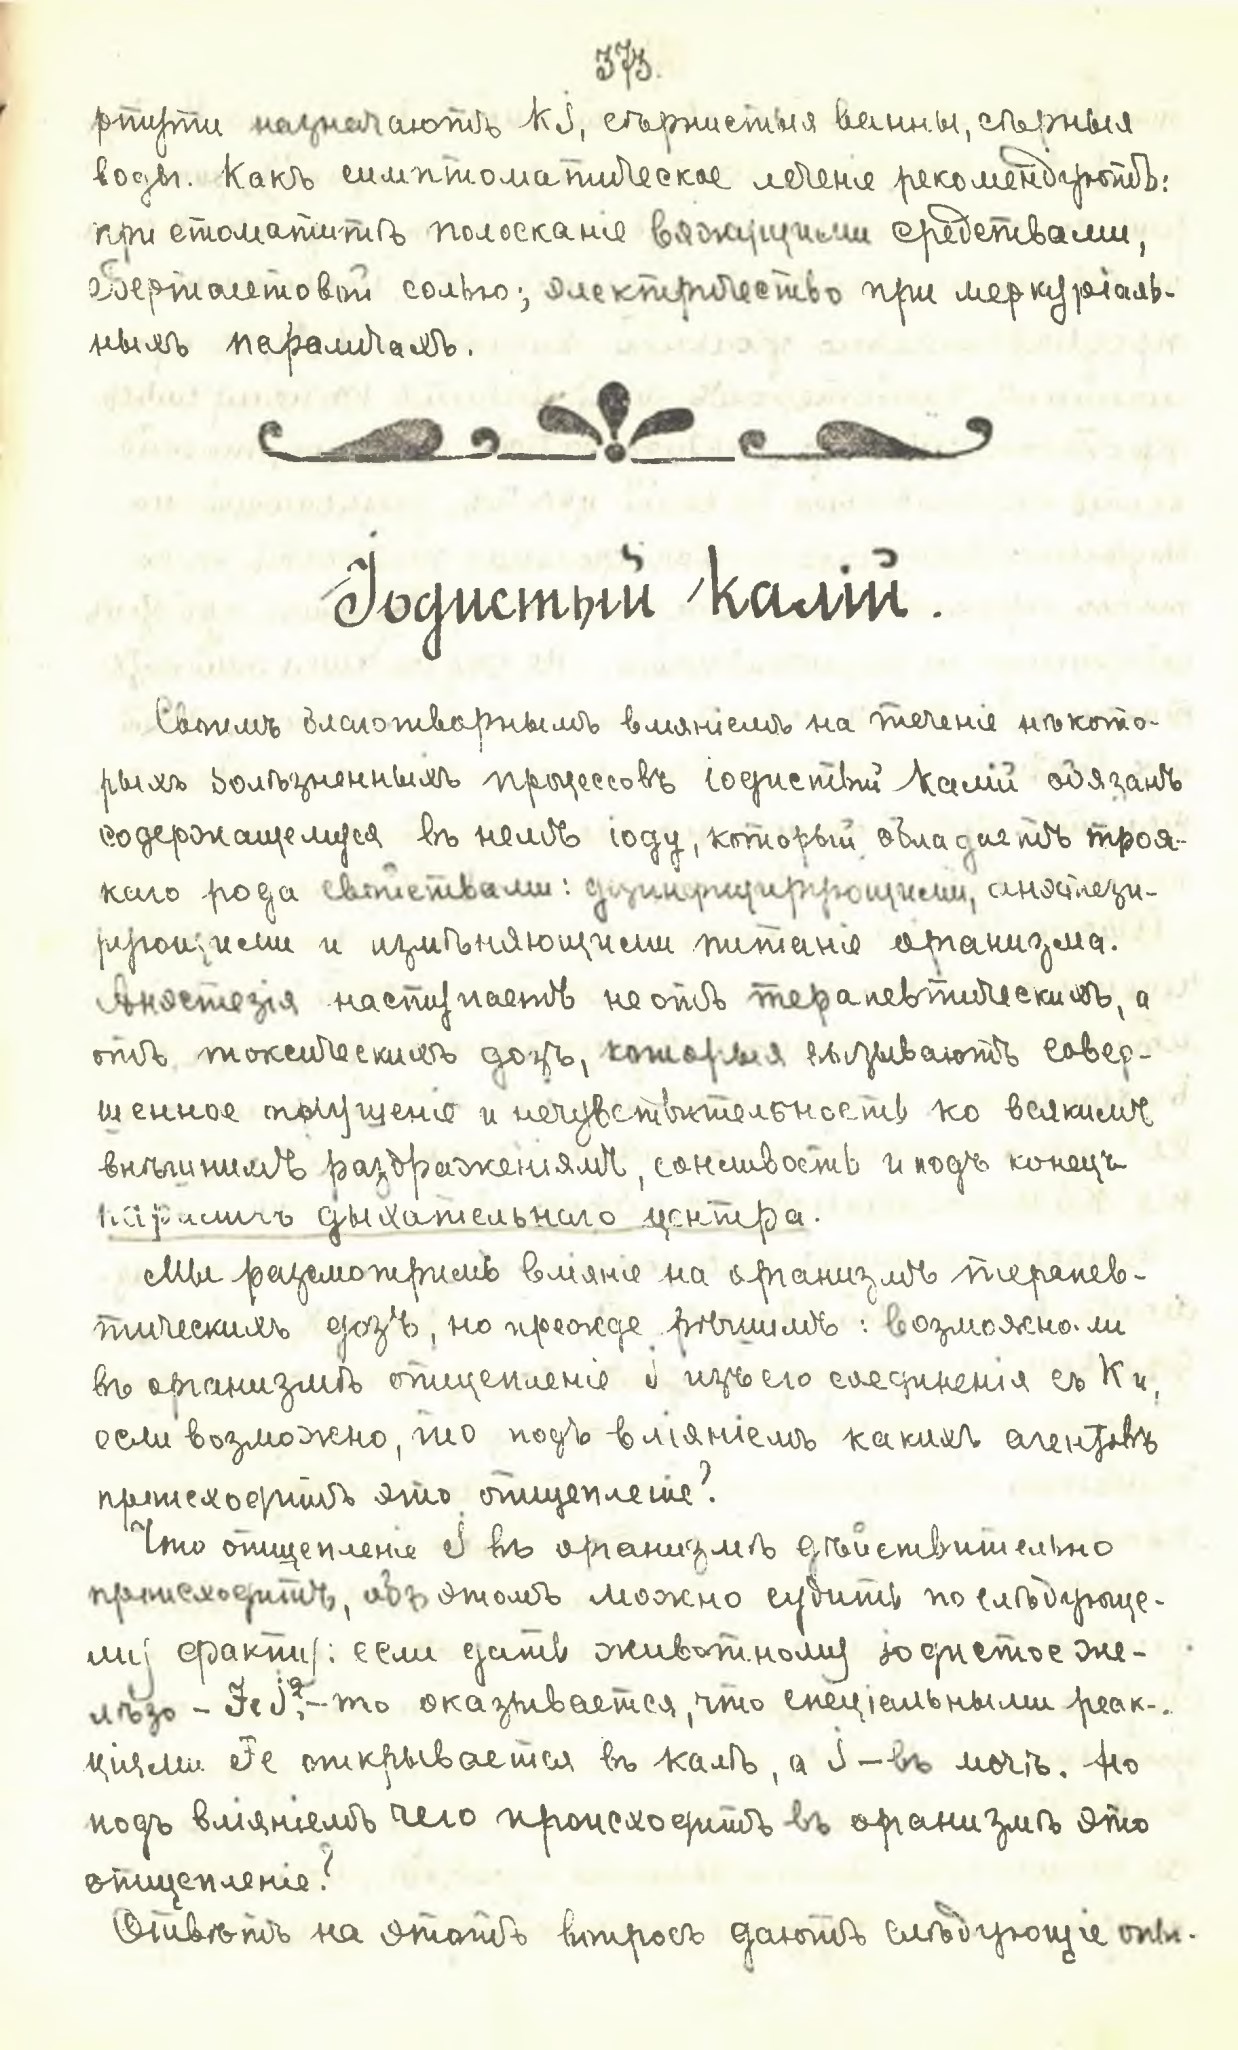 373.
ртути назначаютъ KJ, сѣрнистыя ванны, сѣрныя
воды. Какъ симптоматическое леченіе рекомендуютъ:
при стоматитѣ полосканіе вяжущими средствами,
Бертолетовой солью; электричество при меркуріаль-
ныхъ параличахъ.
Іодистый Калій.
Своимъ благотворнымъ вліяніемъ на теченіе нѣкото-
рыхъ болѣзненныхъ процессовъ іодистый Калій обязанъ
содержащемуся въ немъ іоду, который обладаетъ троя-
каго рода свойствами: дезинфицирующими, анэстези-
рующими и измѣняющими питаніе организма.
Анэстезія наступаетъ не отъ терапевтическихъ, а
отъ токсическихъ дозъ, которыя вызываютъ совер-
шенное отупѣніе и нечувствительность ко всякимъ
внѣшнимъ раздраженіямъ, сонливость и подъ конецъ
параличъ дыхательнаго центра.
Мы разсмотримъ вліяніе на организмъ терапев-
тическихъ дозъ, но прежде рѣшимъ: возможно-ли
въ организмѣ отщепленіе J изъ его соединенія съ K и,
если возможно, то подъ вліяніемъ какихъ агентовъ
происходитъ это отщепленіе?
Что отщепленіе J въ организмѣ дѣйствительно
происходитъ, объ этомъ можно судить по слѣдующе-
му факту: если дать животному іодистое же-
лѣзо – FeJ², – то оказывается, что спеціальными реак-
ціями Fe открывается въ калѣ, а J – въ мочѣ. Но
подъ вліяніемъ чего происходитъ въ организмѣ это
отщепленіе?
Отвѣтъ на этотъ вопросъ даютъ слѣдующіе опы-